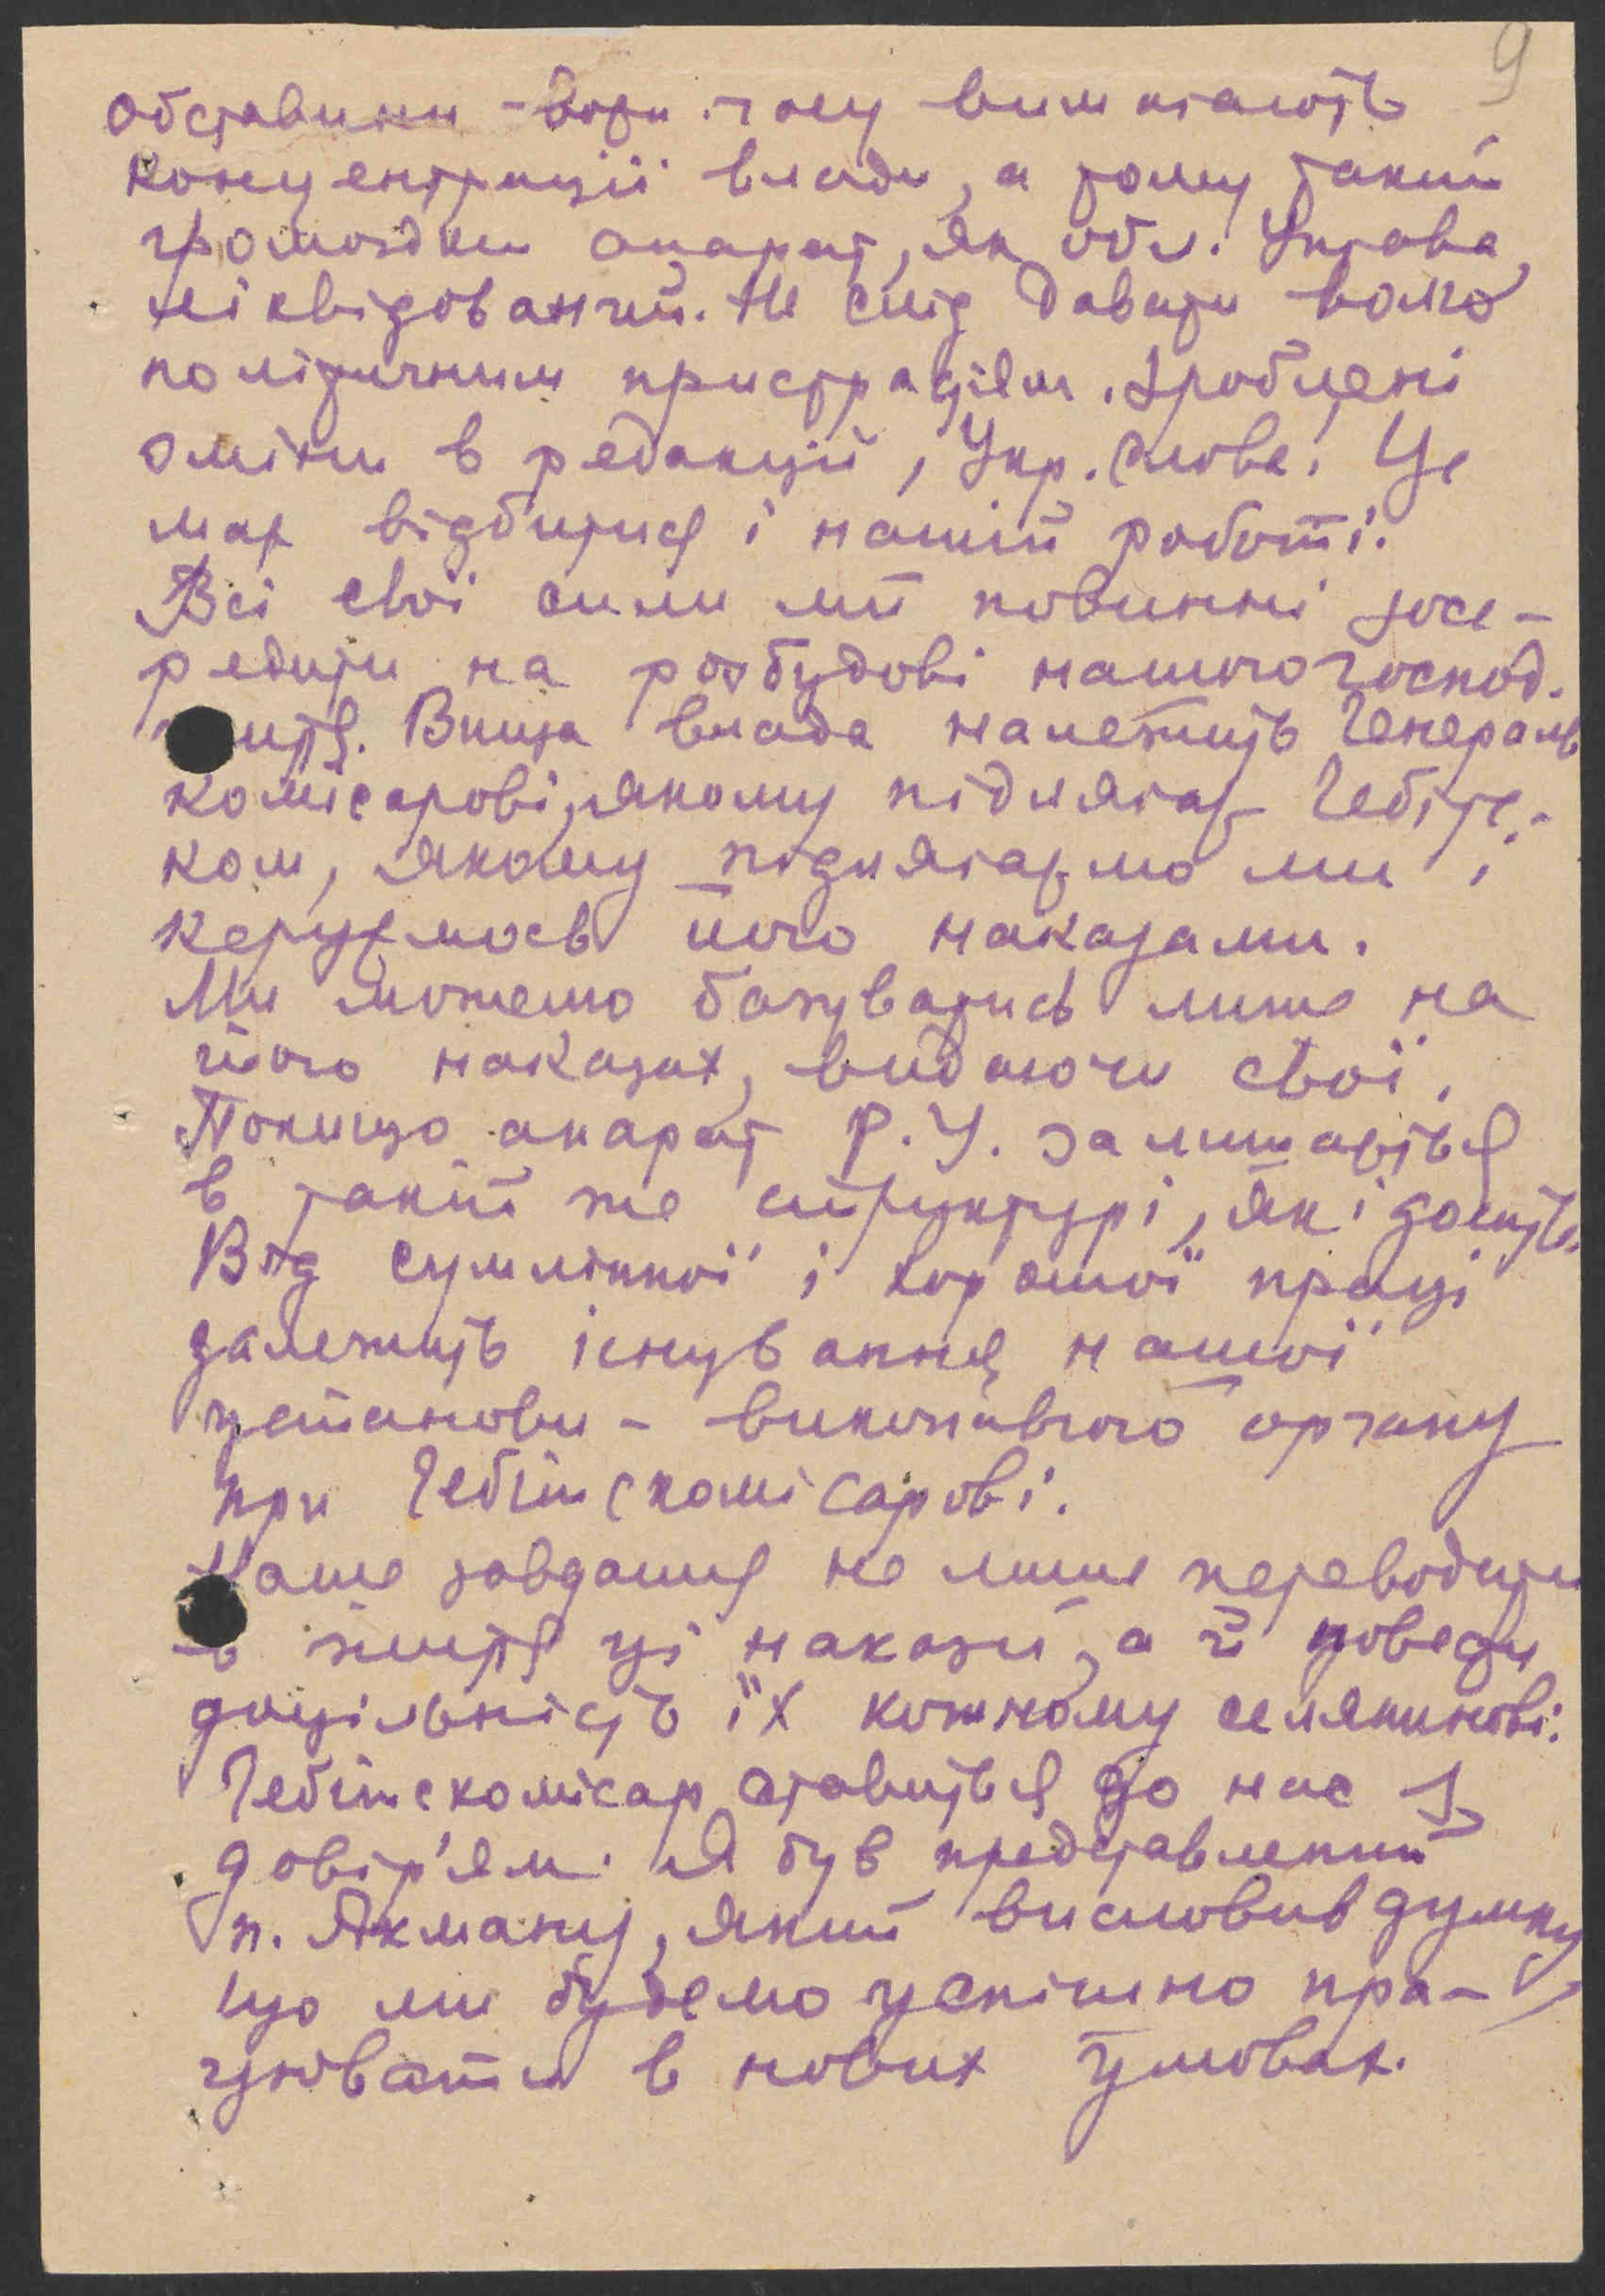 9
обставини часу вимагають
концентрації влади, а тому такий
громоздки апарат, як обл. Управа,
ліквідований. Не слід давати волю
політичним пристрастям. Зроблені
зміни в редакції, Укр. Слова. Це
має відбитися і нашій роботі.
Всі свої сили ми повинні зосе-
редити на розбудові нашого господ.
Вища влада належить Генераль
комісарові, якому підлягає Гебітс-
ком, якому підлягаємо ми і
керуємось його наказами.
Ми можемо базуватись лише на
його наказах, видаючи свої.
Покищо апарат Р.У. залишається
в такій же структурі, як і досить.
Від сумлінної і хорошої праці
залежить існування нашої
установи - виконавчого органу
при Гебітскомісарові.
Наше завдання не лише переводити
в життя ці накази, а й довести
доцільність їх кожному селянинові.
Гебітскомісар ставиться до нас з
довір'ям. Я був представлений
п. Якману, який висловив думку
що ми будемо успішно пра-
цювати в нових умовах.